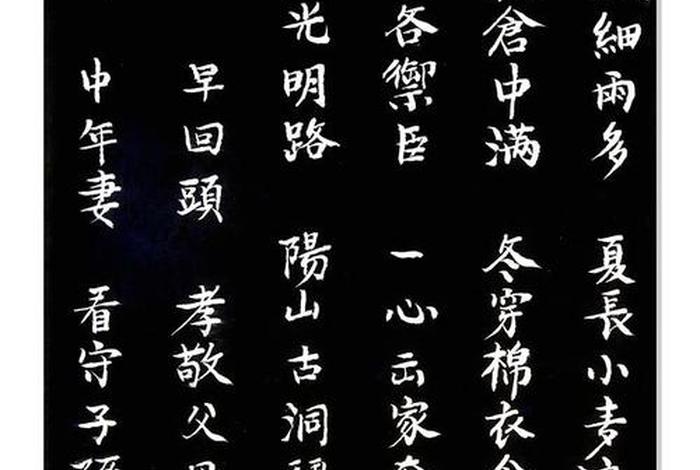 細雨多 夏長小麦
倉中满 冬穿棉衣
各禦臣 一心云家
光明路 陽山古洞
早回頭 孝敬父
中年妻 看守子